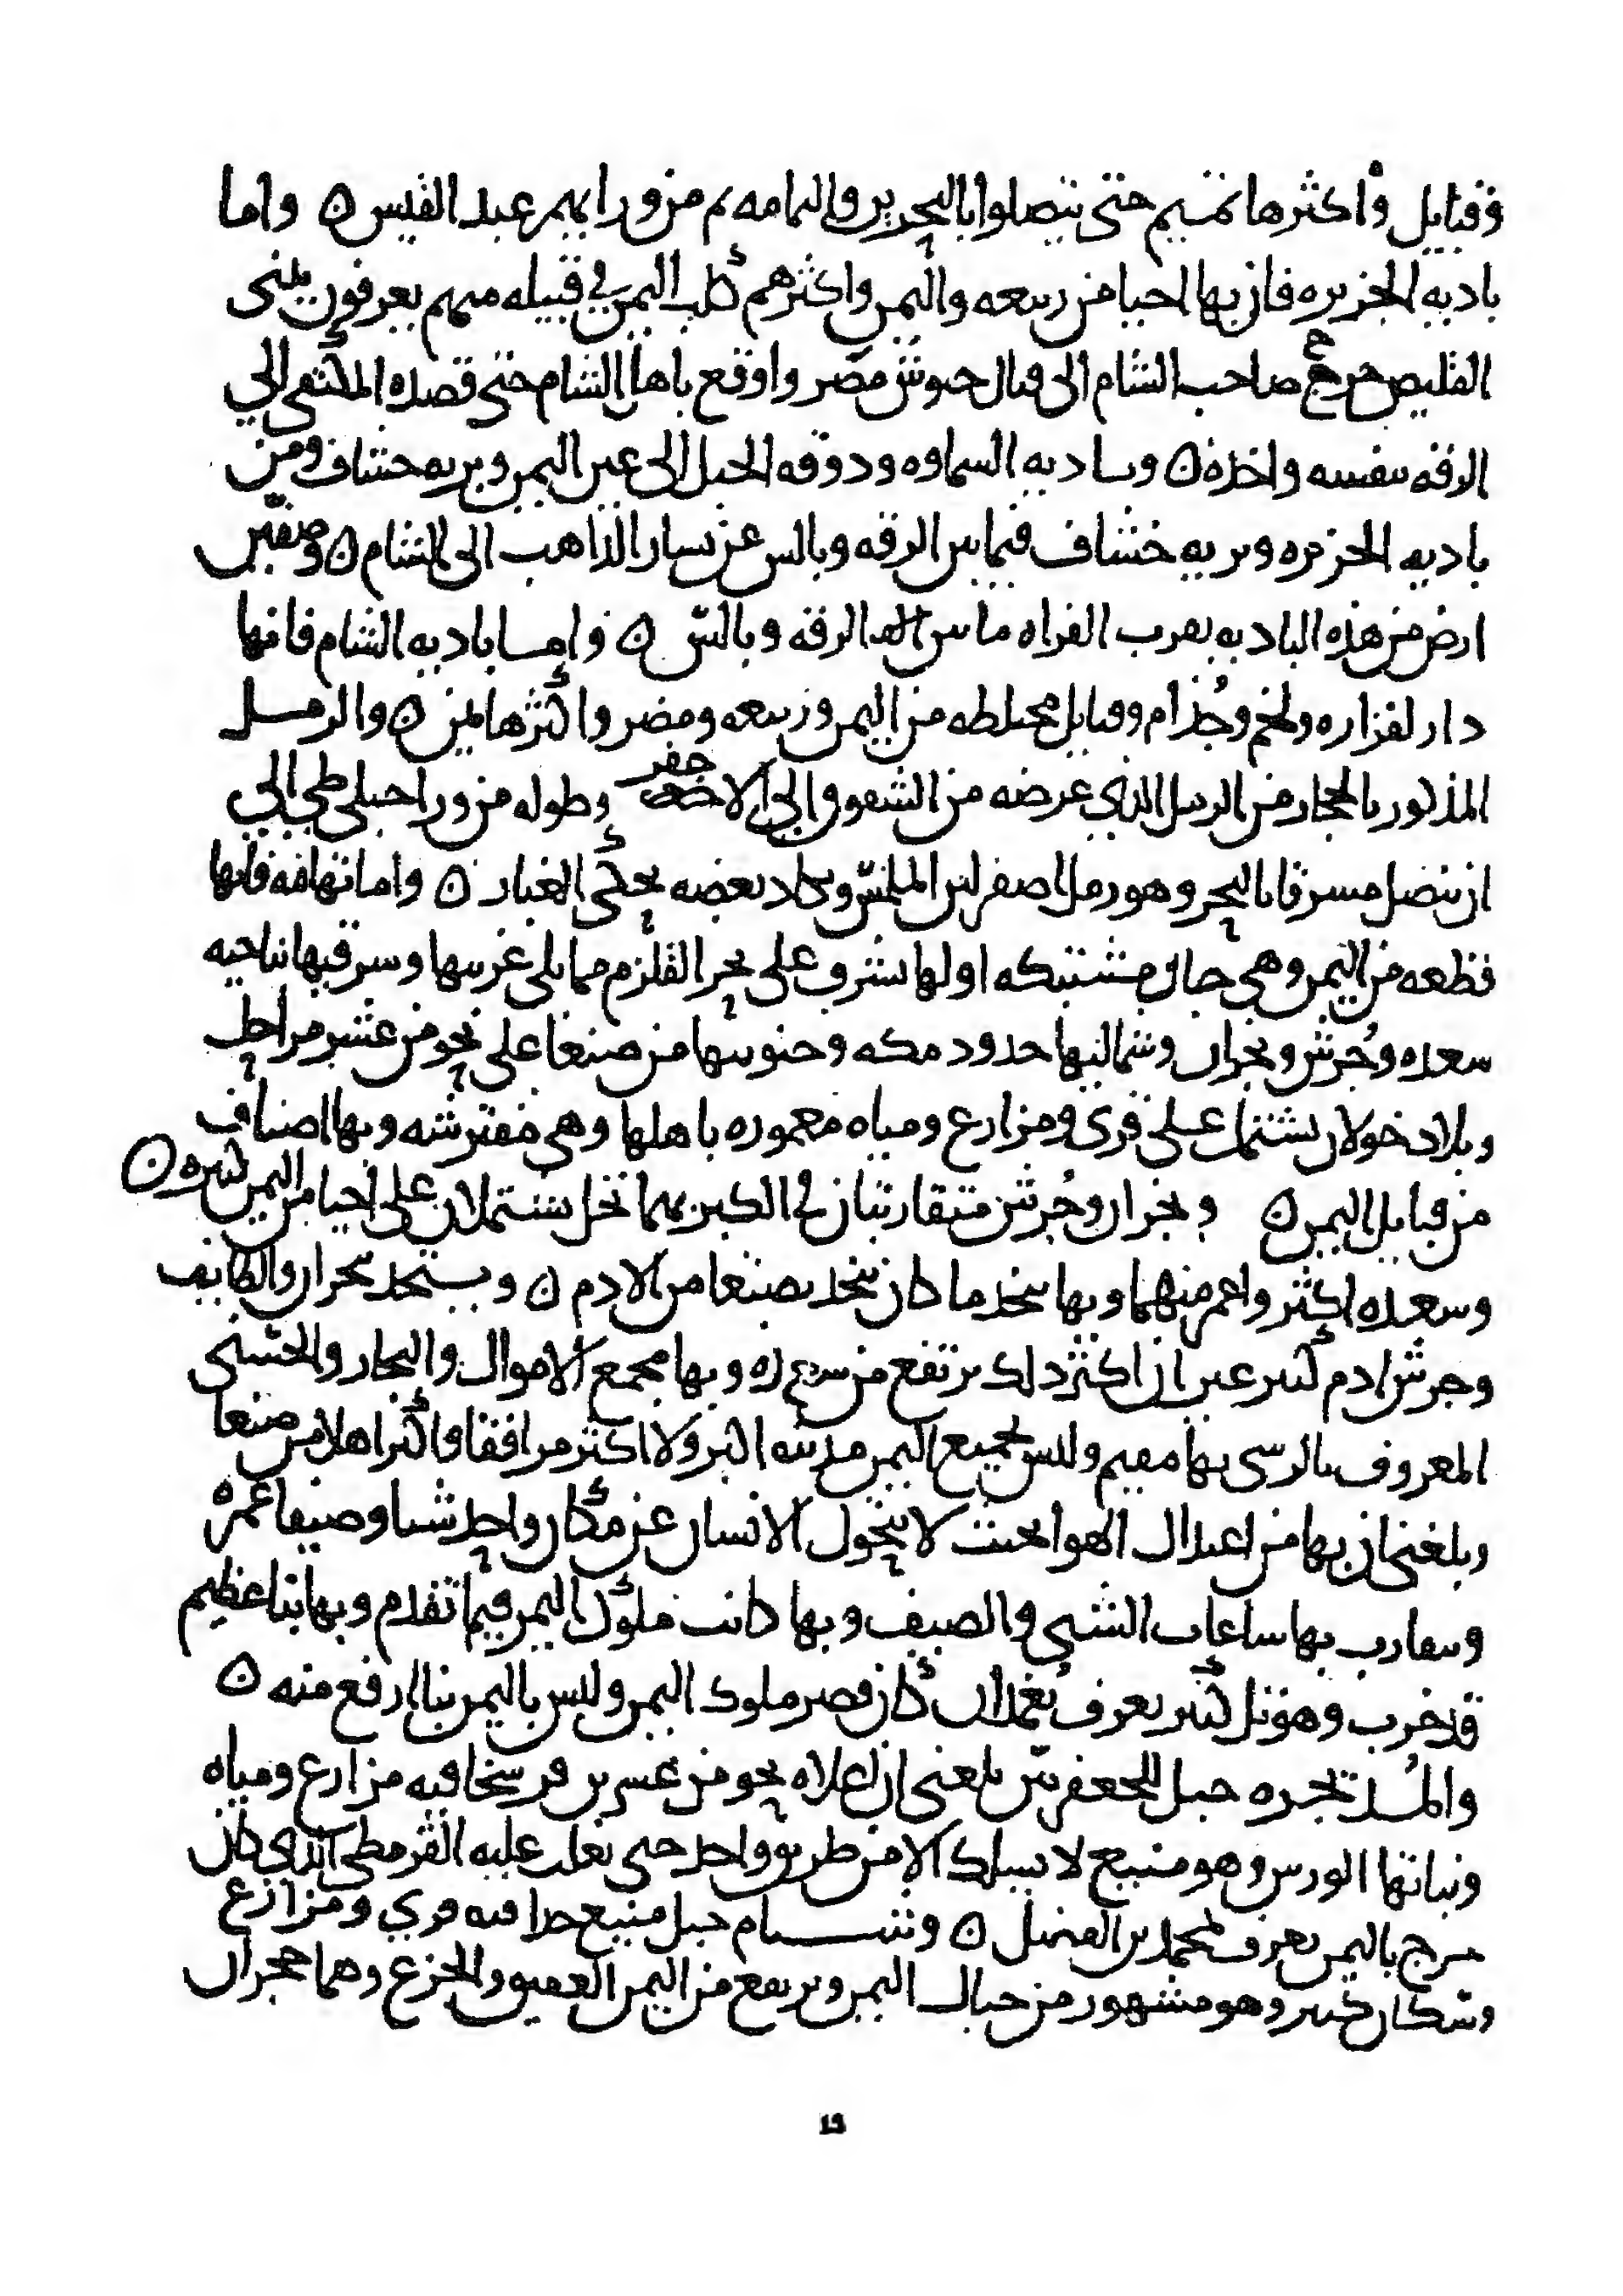 وقبايل واكثرها تميم حتى يتصلوا بالبحرين واليمامه ثم من ورايهم عبد القيس ن واما
باديه الجزيره فان بها احيا من ربيعه واليمن واكثرهم كلب اليمن في قبيله منهم يعرفون ببني
القليص خرج صاحب الشام الى قتال جيوش مصر واوقع باهل الشام حتى قصده المكتفي الي
الرقه بنفسه واخذه ن وباديه السماوه ودوقه الجبل الى عين اليمن وبريه خشاف ومن
باديه الجزيره وبريه خشاف فيما بين الرقه وبالس عن يسار الذاهب الى الشام ن وصفين
ارض من هذه الباديه بقرب الفراه ما بين الرقه وبالس ن واما باديه الشام فانها
دار لفزاره ولخم وجُذام وقبايل مختلطه من اليمن وربيعه ومضر واكثرها يمن ن والرمل
المذكور بالحجاز من الرمل الذي عرضه من الشقوق الى الاجفر وطوله من ورا جبلي طي الي
ان يتصل مشرقا بالبحر وهو رمل اصفر لين الملمس ويكاد بعضه يحكي الغبار ن واما تهامه فانها
قطعه من اليمن وهي جبال مشتبكه اولها يشرف على بحر القلزم مما يلي غربيها وشرقيها بناحيه
سعده وجُرش ونجران وشماليها حدود مكه وجنوبيها من صنعا على نحو من عشر مراحل
وبلاد خولان يشتمل على قرى ومزارع ومياه معموره باهلها وهي مفترشه وبها اصناف
من قبايل اليمن ن ونجران وجُرش متقاربتان في الكبر بهما نخل يشتملان على احيا من اليمن كثيره ن
وسعده اكثر واعمر منهما وبها يتخذ ما كان يتخذ بصنعا من الادم ن ويتخذ بنجران والطايف
وجرش ادم كثير غير ان اكثر ذلك يرتفع من سعده وبها مجمع الاموال والتجار والحسني
المعروف بالرسي بها مقيم وليس بجميع اليمن مدينه اكبر ولا اكثر مرافقا واكثر اهلا من صنعا
وبلغني ان بها من اعتدال الهوا بحيث لا يتحول الانسان عن مكان واحد شتا وصيفا عمره
ويتقارب بها ساعات الشتي والصيف وبها كانت ملوك اليمن فيما تقدم وبها بنا عظيم
قد خرب وهو تل كبير يعرف بُغمدان كان قصر ملوك اليمن وليس باليمن بنا ارفع منه ن
والمُذيخره جبل للجعفريين بلغني ان اعلاه نحو من عشرين فرسخا فيه مزارع ومياه
ونباتها الورس وهو منيع لا يسلك الا من طريق واحد حتى تغلب عليه القرمطي الذي كان
خرج باليمن يعرف بمحمد بن الفضل ن وشبام جبل منيع جدا فيه قري ومزارع
وسكان كثير وهو مشهور من جبال اليمن ويرتفع من اليمن العقيق والجزع وهما حجران
١٩